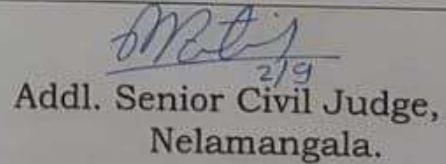 2/9
Addl. Senior Civil Judge,
Nelamangala.